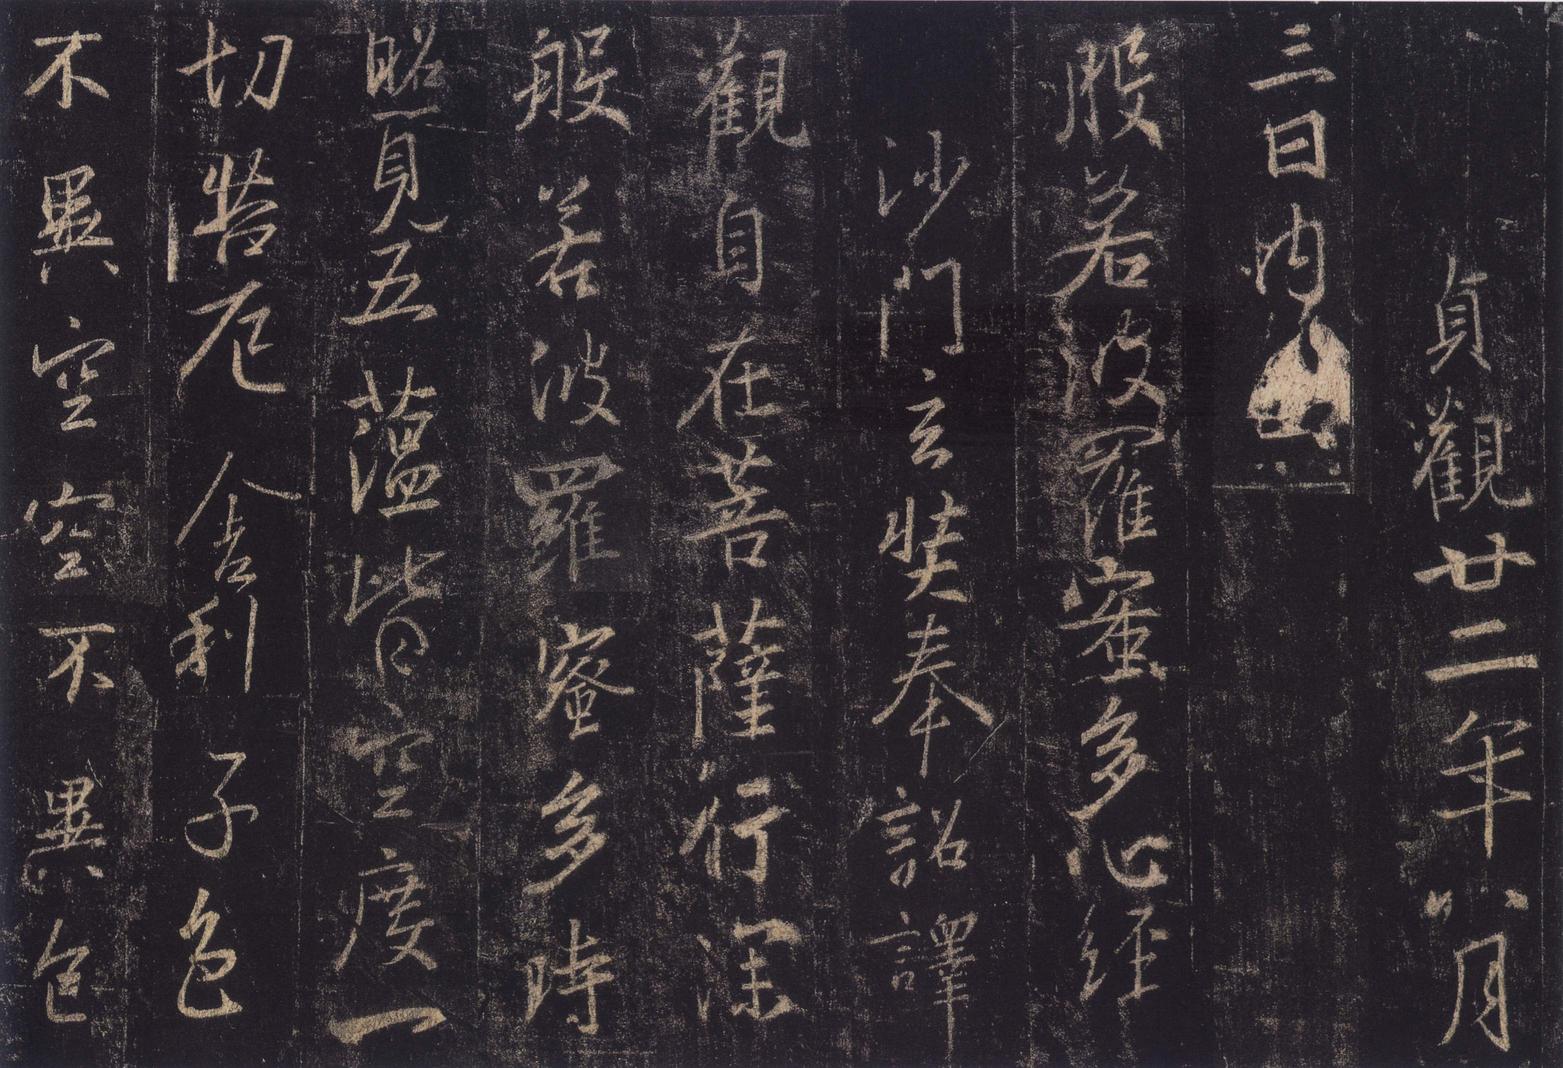 貞觀廿二年八月
三日内出
般若波羅蜜多心經
沙門玄奘奉詔譯
觀自在菩薩行深
般若波羅蜜多時
照見五蘊皆空度一
切苦厄舍利子色
不異空空不異色